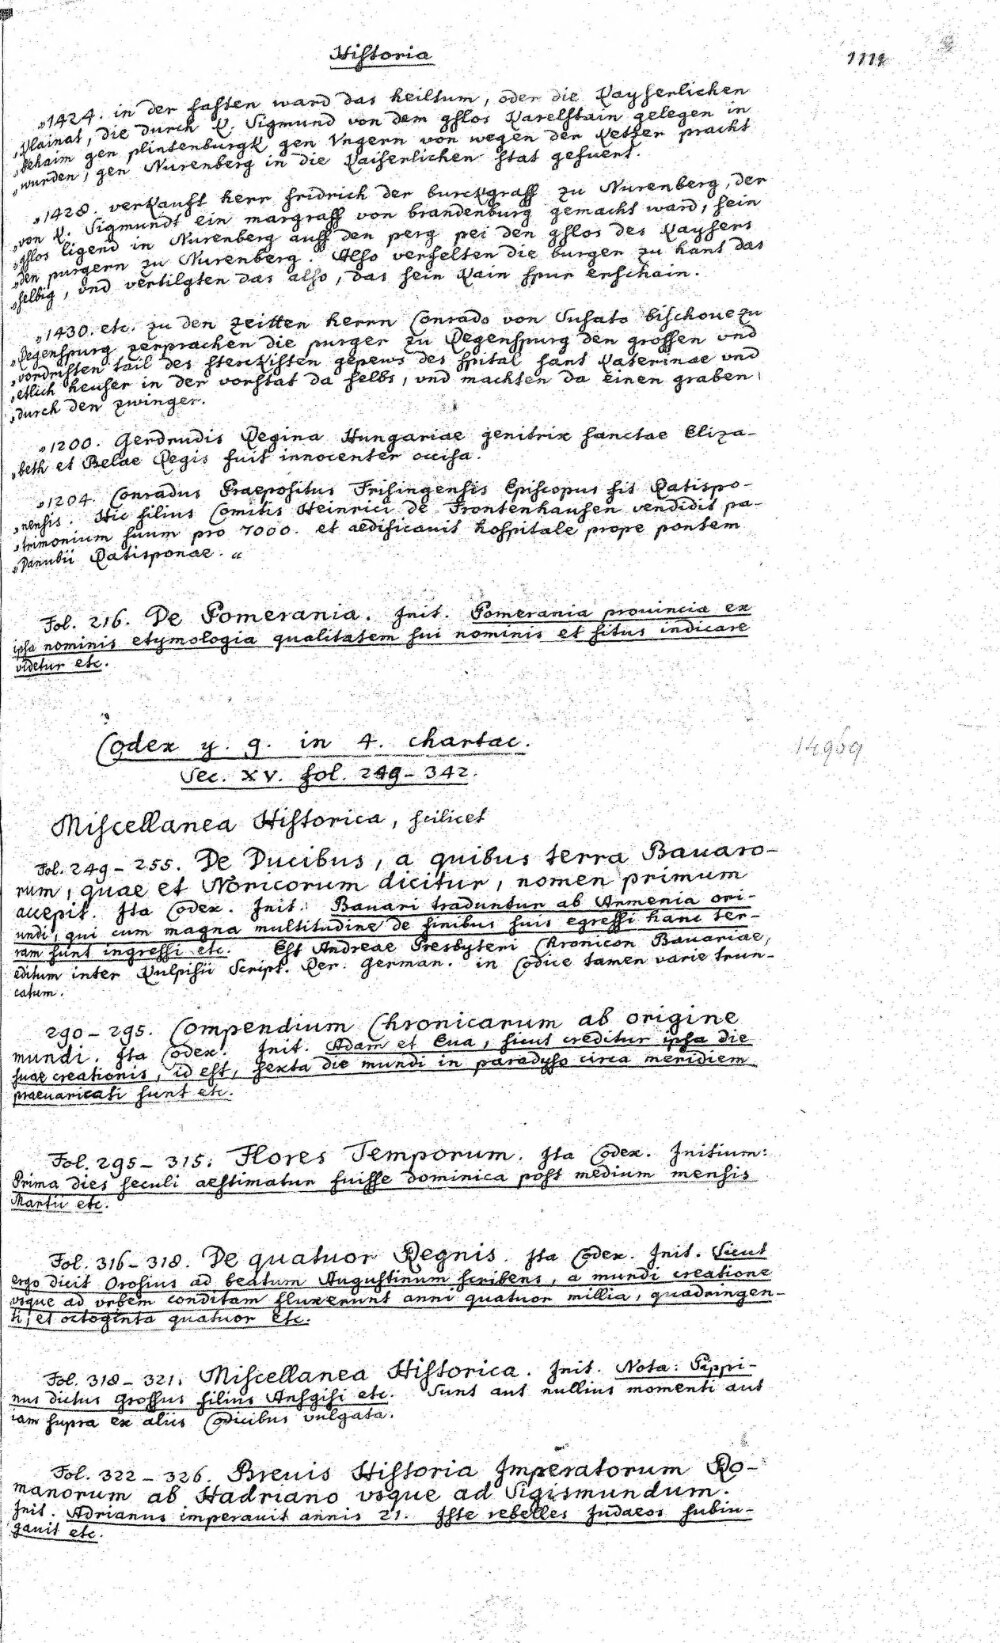 Historia
1111
„1424. in der fasten ward das heiltum, oder die Kayserlichen
„klainat, die durch K. Sigmund von dem gslos Karelstain gelegen in
„behaim gen plintenburgk gen Vngern von wegen der Ketzer pracht
„wurden, gen Nurenberg in die Kaiserlichen stat gefuert.
„1428. verkauft herr fridrich der burckgraff zu Nurenberg, der
„von K. Sigmundt ein margraff von brandenburg gemacht ward, sein
„gslos ligend in Nurenberg auff den perg pei den gslos des Kaysers
„den purgern zu Nurenberg. Also verfelten die burger zu hant das
„selbig, vnd vertilgten das also, das sein kain spur erschain.
„1430. etc. zu den zeitten herrn Conrado von Susato bischoue zu
„Regenspurg zerprachen die purger zu Regenspurg den grossen vnd
„vordristen tail des sterckisten gepews des spital sant Katerinae vnd
„etlich heuser in der vorstat da selbs, vnd machten da einen graben
„durch den zwinger.
„1200. Gerdrudis Regina Hungariae genitrix sanctae Eliza-
„beth et Belae Regis fuit innocenter occisa.
„1204. Conradus Praepositus Frisingensis Episcopus fit Ratispo-
„nensis. Hic filius Comitis Heinrici de Frontenhausen vendidit pa-
„trimonium suum pro 7000. et aedificauit hospitale prope pontem
„Danubii Ratisponae. “
Fol. 216. De Pomerania. Init. Pomerania prouincia ex
ipsa nominis etymologia qualitatem sui nominis et situs indicare
videtur etc.
Codex y. 9. in 4. chartac.
14969
Sec. XV. fol. 249–342.
Miscellanea Historica, scilicet
Fol. 249–255. De Ducibus, a quibus terra Bauaro-
rum, quae et Noricorum dicitur, nomen primum
accepit. Ita Codex. Init: Bauari traduntur ab Armenia ori-
undi, qui cum magna multitudine de finibus suis egressi hanc ter-
ram sunt ingressi etc. Est Andreae Presbyteri Chronicon Bauariae,
editum inter Kulpisii Script. Rer. German. in Codice tamen varie trun-
catum.
290–295. Compendium Chronicarum ab origine
mundi. Ita Codex. Init. Adam et Eua, sicut creditur ipsa die
suae creationis, id est, sexta die mundi in paradyso circa meridiem
praeuaricati sunt etc.
Fol. 295–315. Flores Temporum. Ita Codex. Initium:
Prima dies seculi aestimatur fuisse dominica post medium mensis
Martii etc.
Fol. 316–318. De quatuor Regnis. Ita Codex. Init. Sicut
ergo dicit Orosius ad beatum Augustinum scribens, a mundi creatione
vsque ad vrbem conditam fluxerunt anni quatuor millia, quadringen-
ti, et octoginta quatuor etc.
Fol. 318–321. Miscellanea Historica. Init. Nota: Pippi-
nus dictus Grossus filius Ansgisi etc. Sunt aut nullius momenti aut
iam supra ex aliis Codicibus vulgata.
Fol. 322–326. Breuis Historia Imperatorum Ro-
manorum ab Hadriano vsque ad Sigismundum.
Init. Adrianus imperauit annis 21. Iste rebelles Judaeos subiu-
gauit etc.